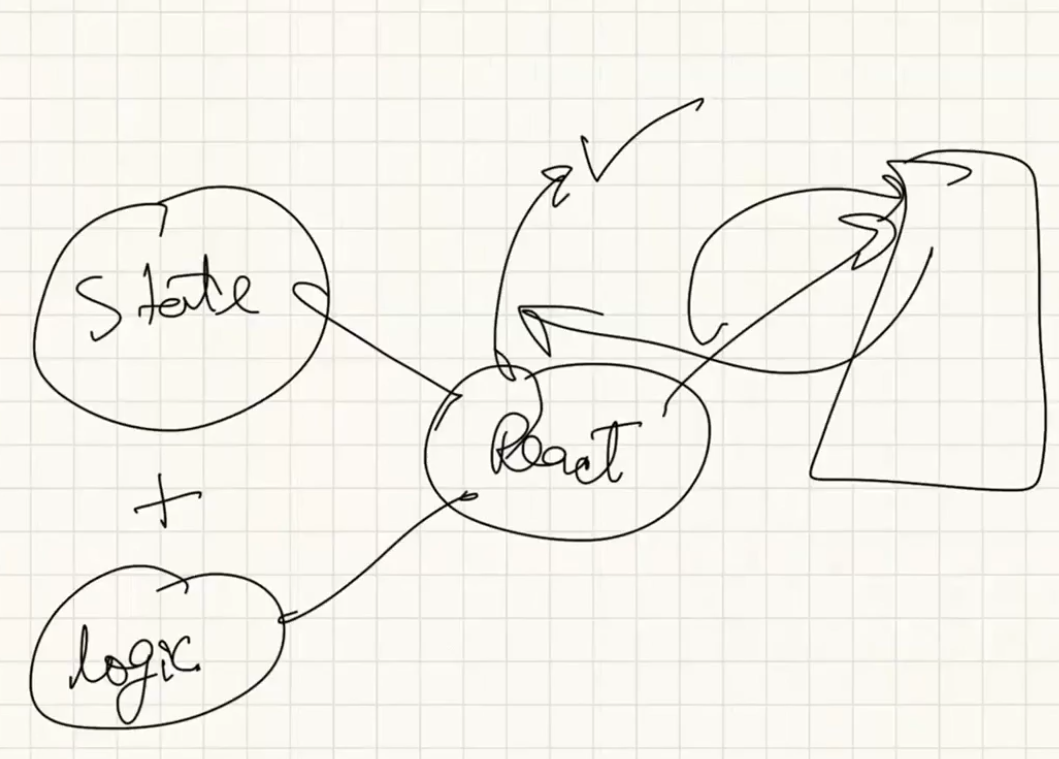 State
+
logic
React